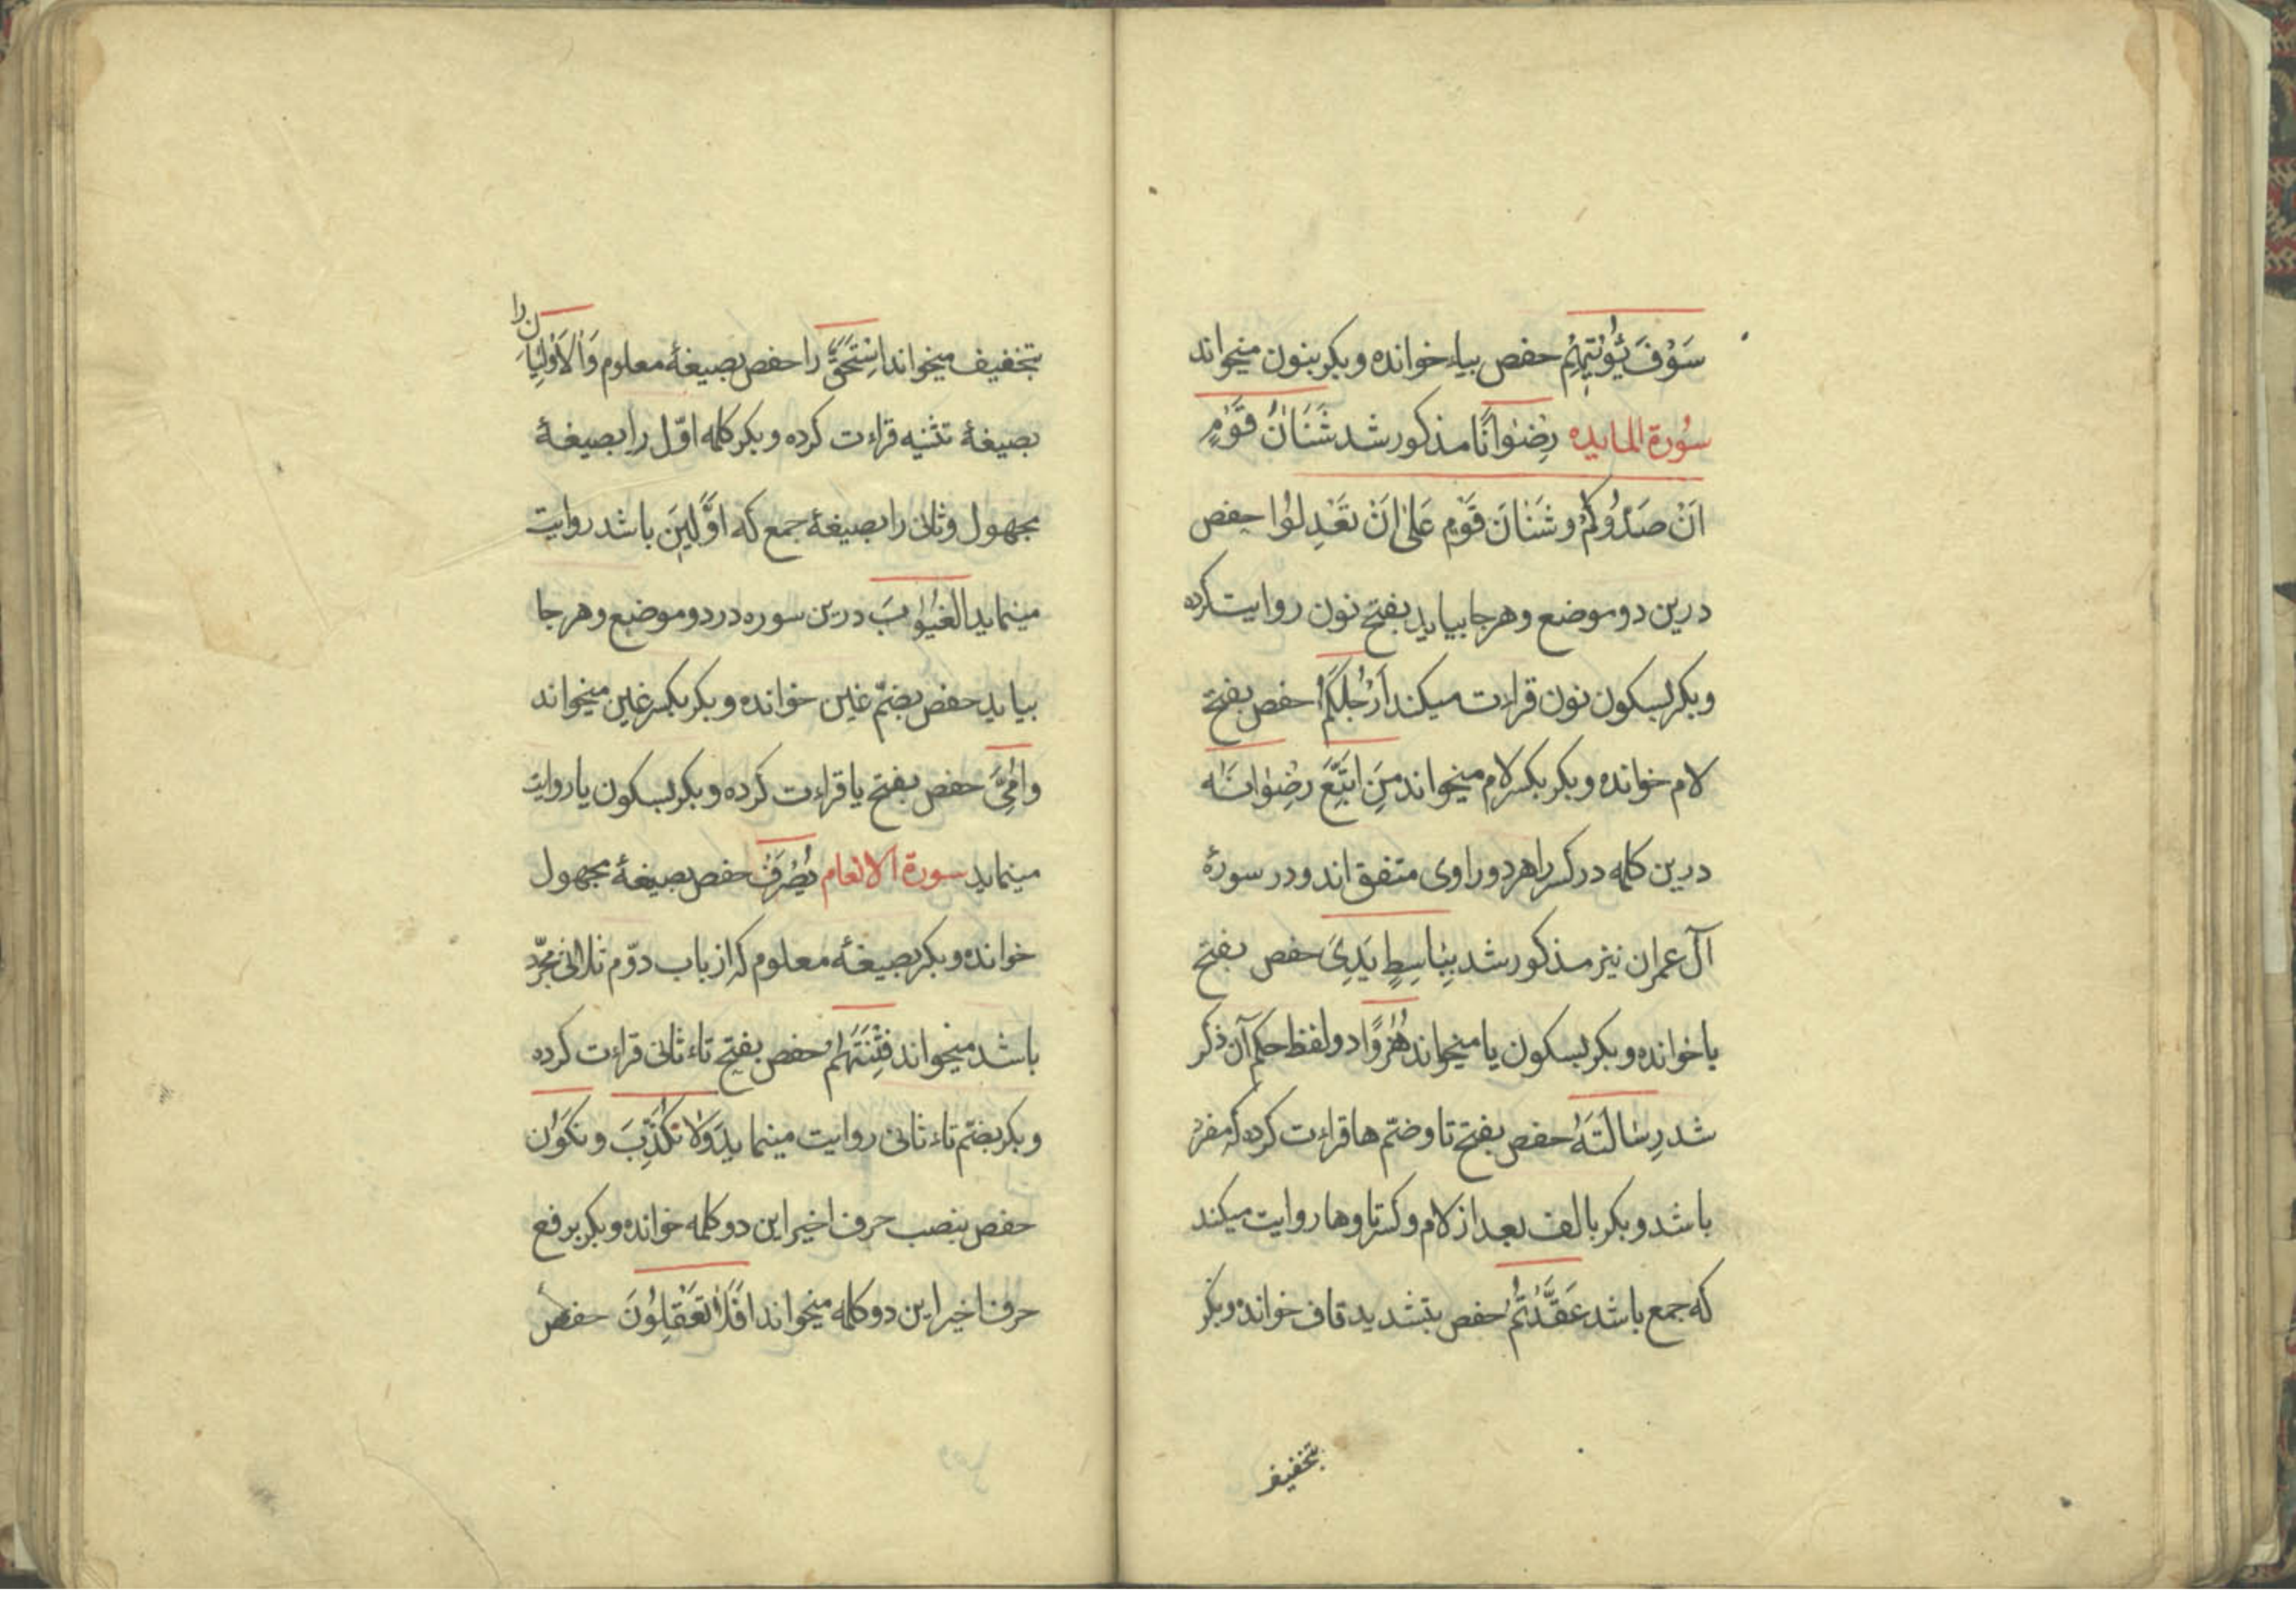 سَوْفَ يُؤْتِيهِمْ حفص بیاء خوانده و بکر بنون میخواند
سُورة المایده رِضْوانًا مذکور شد شَنَانُ قَوْمٍ
اَنْ صَدُّوکُمْ و شَنَانَ قَوْمٍ عَلیٰ اَنْ تَعْدِلُوا حفص
درین دو موضع و هر جا بیاید بفتح نون روایت کرده
و بکر بسکون نون قراءت میکند اَرْجُلَکُمْ حفص بفتح
لام خوانده و بکر بکسر لام میخواند مَنِ اتَّبَعَ رِضْوانَه
درین کلمه در کسر را هر دو راوی متفق اند و در سورهٔ
آل عمران نیز مذکور شد بِبَاسِطٍ یَدِیَ حفص بفتح
یا خوانده و بکر بسکون یا میخواند هُزُوًا دو لفظ حکم آن ذکر
شد رِسَالَتَهُ حفص بفتح تا و ضمّ ها قراءت کرده که مفرد
باشد و بکر با الف بعد از لام و کسر تا و ها روایت میکند
که جمع باشد عَقَّدْتُمْ حفص بتشدید قاف خوانده و بکر
بتخفیف
بتخفیف میخواند اِسْتَحَقَّ را حفص بصیغهٔ معلوم وَالاَوْلَیَانِ را
بصیغهٔ تثنیه قراءت کرده و بکر کلمه اوّل را بصیغهٔ
مجهول و ثانی را بصیغهٔ جمع که اوَّلِینَ باشد روایت
مینماید الغُیُوبَ درین سوره در دو موضع و هر جا
بیاید حفص بضمّ غین خوانده و بکر بکسر غین میخواند
و اُمِّیَ حفص بفتح یا قراءت کرده و بکر بسکون یا روایت
مینماید سورة الانعام یُصْرَفْ حفص بصیغهٔ مجهول
خوانده و بکر بصیغهٔ معلوم که از باب دوّم ثلاثی مجرّد
باشد میخواند فِتْنَتَهُمْ حفص بفتح تاء ثانی قراءت کرده
و بکر بضمّ تاء ثانی روایت مینماید وَلا نُکَذِّبَ و نکَوُنَ
حفص بنصب حرف اخیر این دو کلمه خوانده و بکر برفع
حرف اخیر این دو کلمه میخواند اَفَلا تَعْقِلُونَ حفص